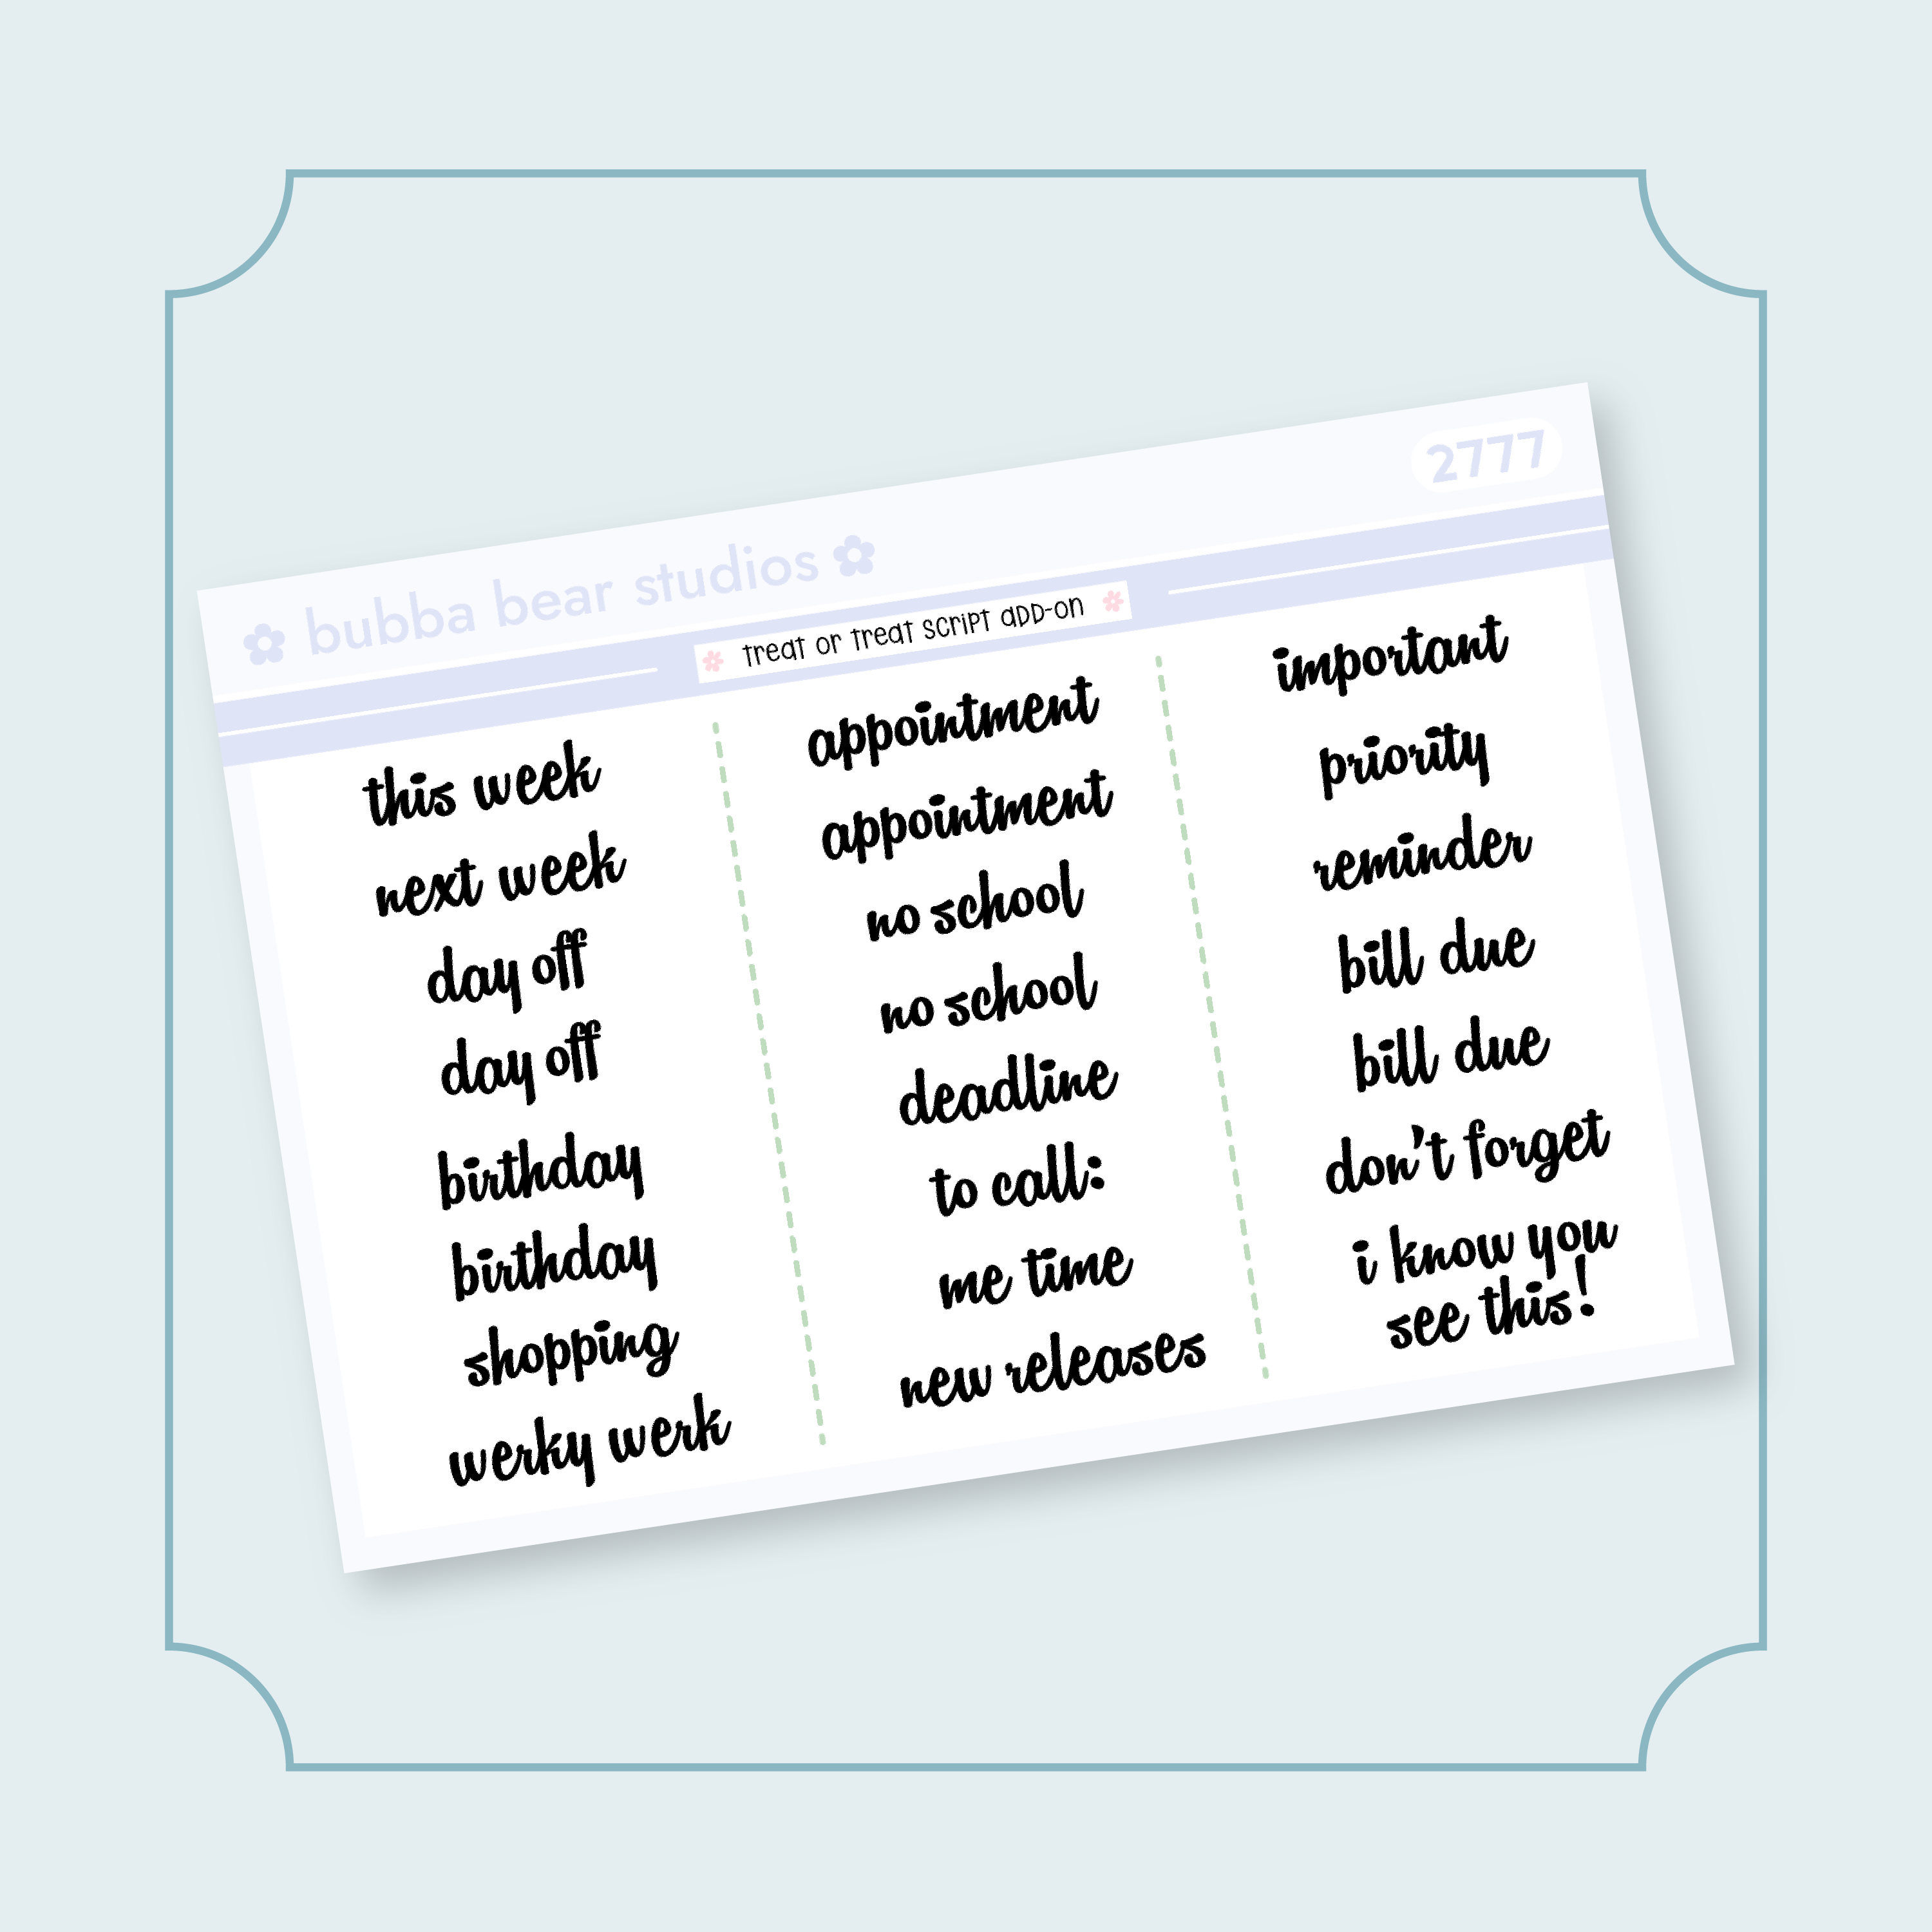 2777
bubba bear studios
treat or treat script add-on
this week
next week
day off
day off
birthday
birthday
shopping
werky werk
appointment
appointment
no school
no school
deadline
to call:
me time
new releases
important
priority
reminder
bill due
bill due
don't forget
i know you
see this!